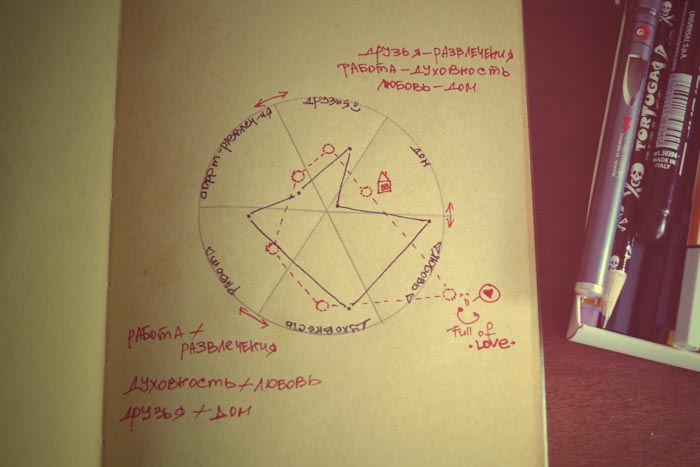 ДРУЗЬЯ-РАЗВЛЕЧЕНИЯ
РАБОТА-ДУХОВНОСТЬ
ЛЮБОВЬ-ДОМ
ДРУЗЬЯ
ДОМ
ЛЮБОВЬ
ДУХОВНОСТЬ
РАБОТА
Full of
LOVE
РАБОТА +
РАЗВЛЕЧЕНИЯ
ДУХОВНОСТЬ + ЛЮБОВЬ
ДРУЗЬЯ + ДОМ
TORTUGA
UNIVERSAL S.P.A.
MADE IN
ITALY